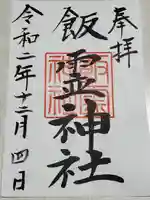 奉拝
飯霊神社
令和二年十二月四日